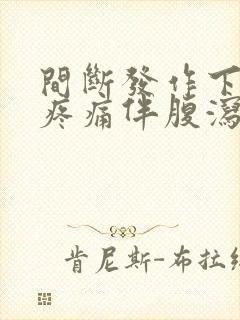 間斷發作下
疼痛伴腹瀉
肯尼斯-布拉